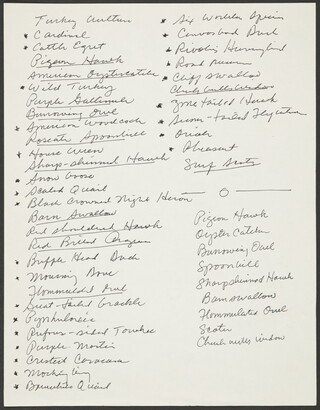 Turkey Vulture
* Cardinal
* Cattle Egret
Pigeon Hawk
American Oystercatcher
* Wild Turkey
Purple Gallinule
Burrowing Owl
* American Woodcock
Roseate Spoonbill
* House Wren
Sharp-shinned Hawk
* Snow Goose
* Scaled Quail
* Black Crowned Night Heron
Barn Swallow
Red shouldered Hawk
Red Billed
* Buffle Head Duck
* Mourning Dove
Flammulated Owl
* Great-tailed Grackle
* Pyrrhuloxia
* Rufous-sided Towhee
* Purple Martin
* Crested Caracara
* Mocking
* Quail
* Six
* Canvasback Duck
* Rivoli's Hummingbird
* Road runner
* Cliff swallow
Chuck wills widow
* Zone tailed Hawk
* Scissor-tailed Flycatcher
* Oriole
* Pheasant
Surf Scoter
O
Pigeon Hawk
Oyster Catcher
Burrowing Owl
Spoonbill
Sharpshinned Hawk
Barn swallow
Flammulated Owl
Scoter
Chuck wills widow